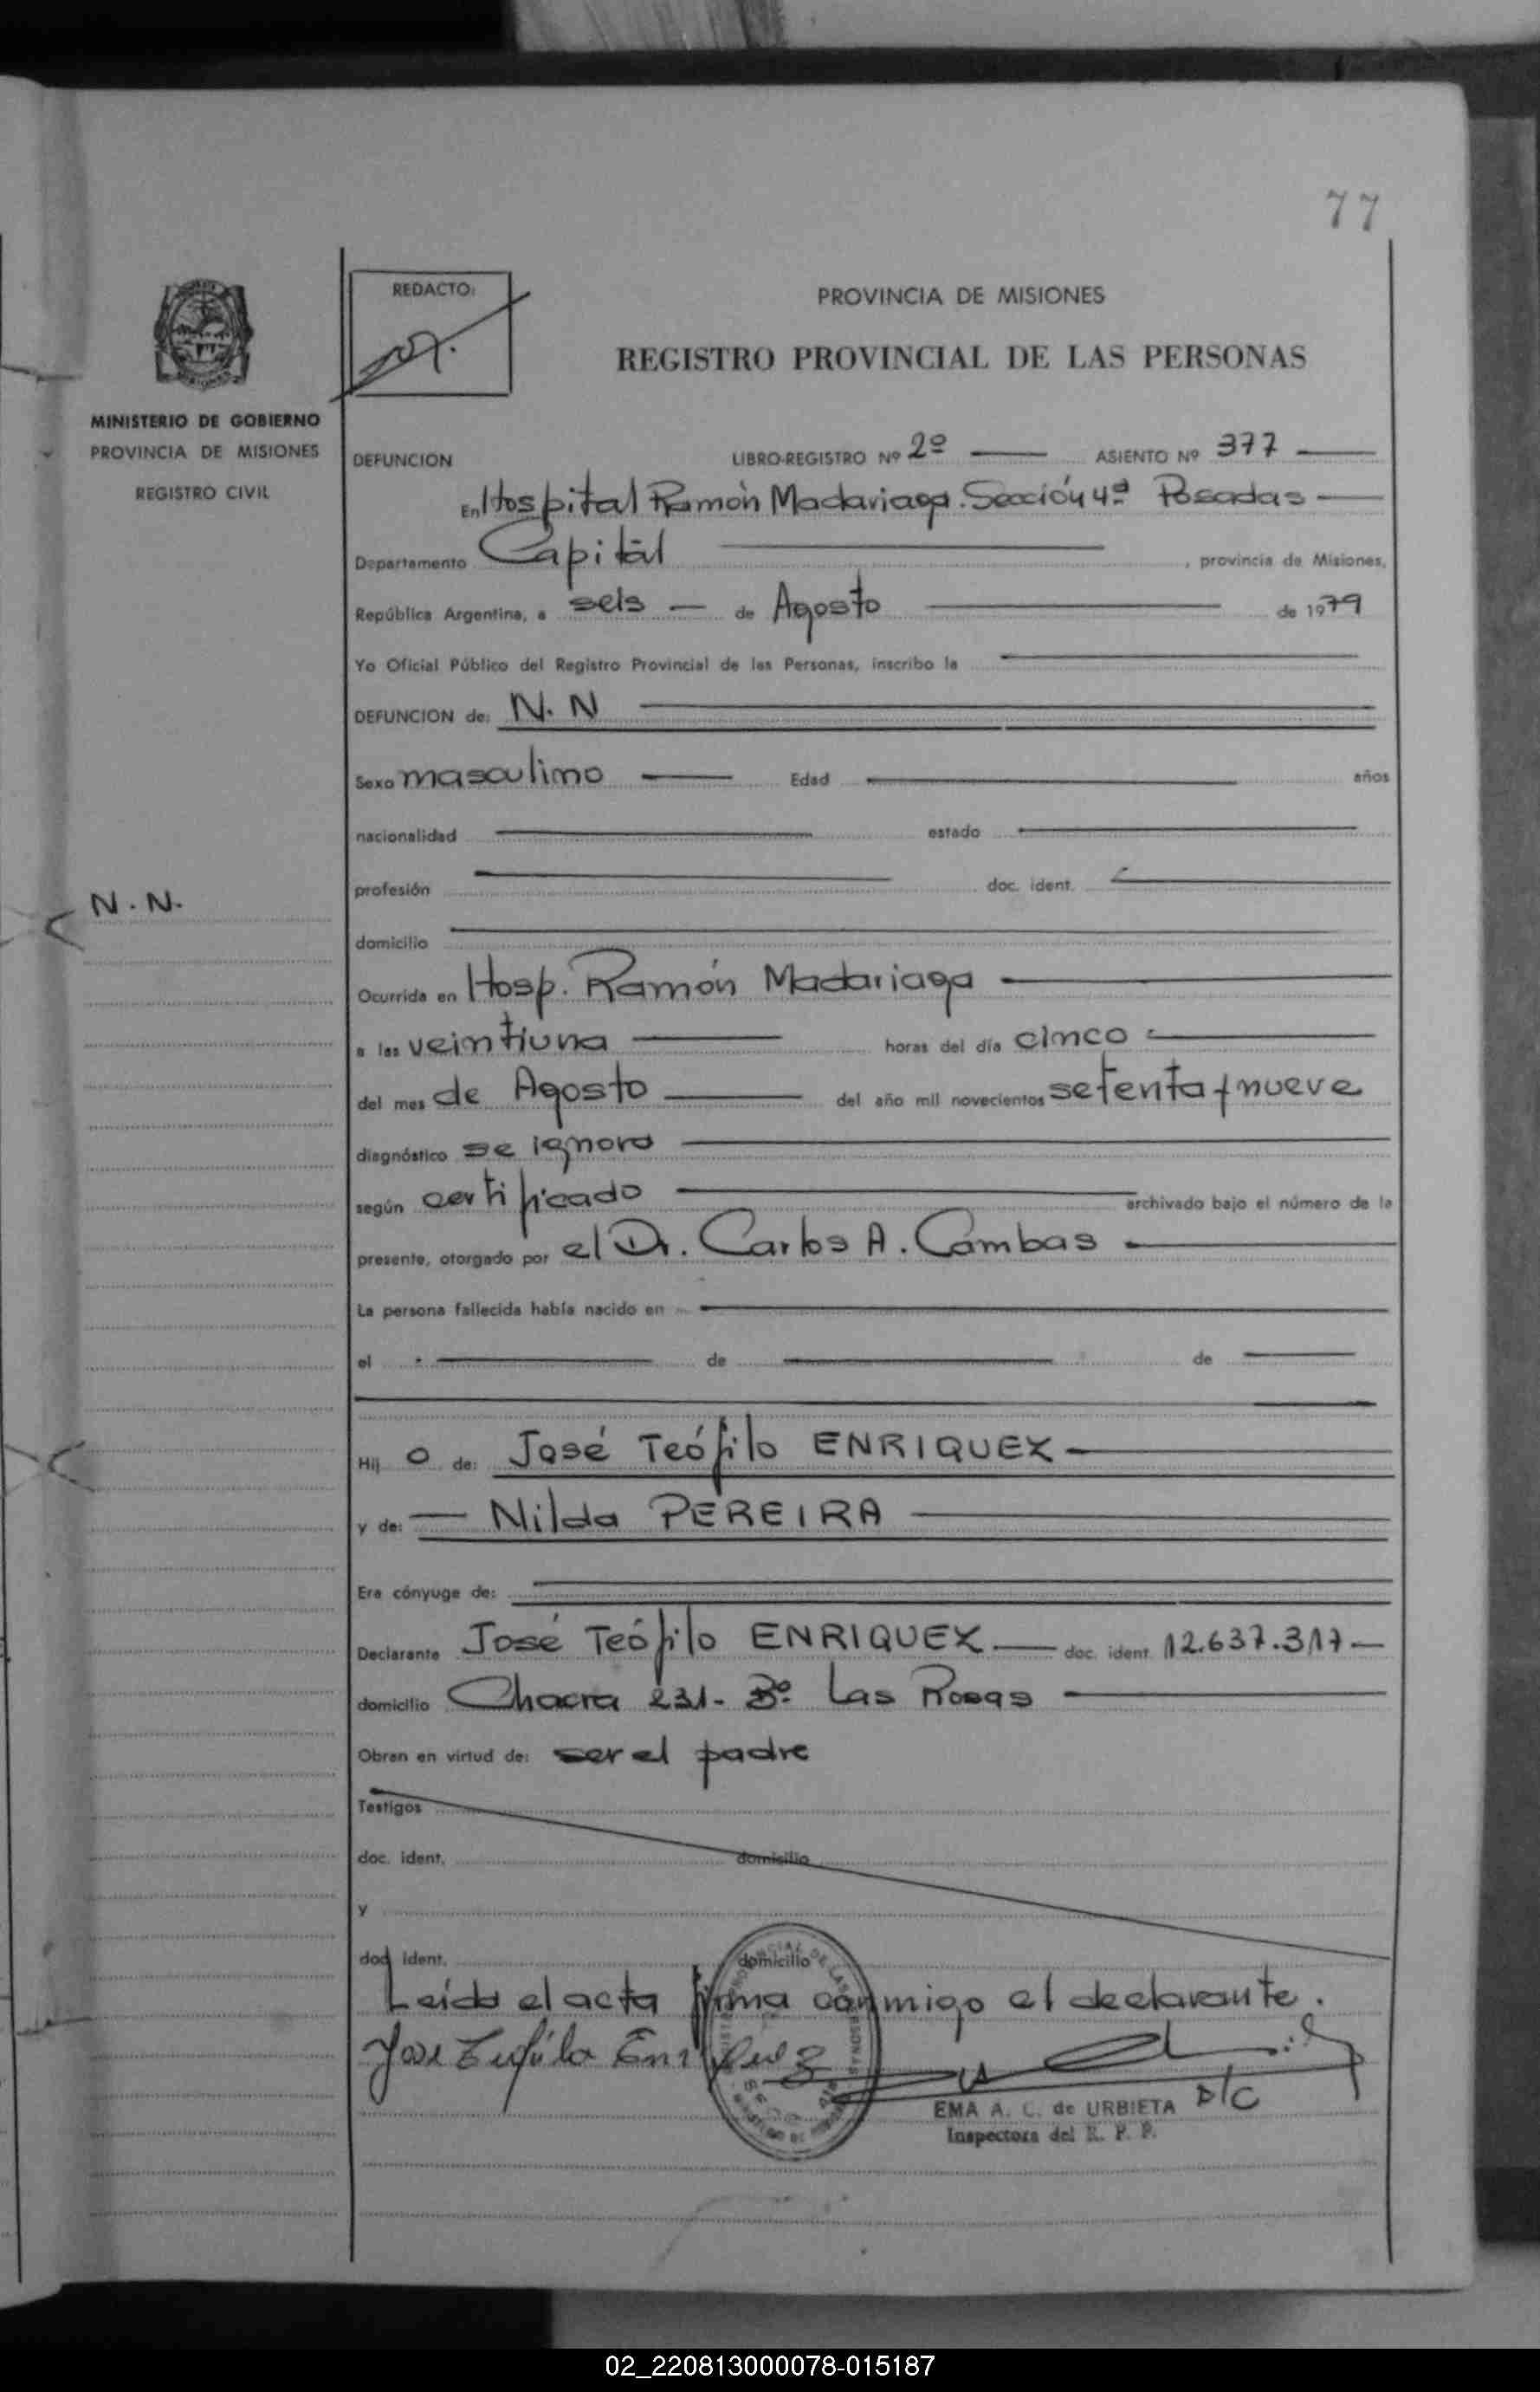 77
REDACTO:
PROVINCIA DE MISIONES
REGISTRO PROVINCIAL DE LAS PERSONAS
MINISTERIO DE GOBIERNO
PROVINCIA DE MISIONES
REGISTRO CIVIL
DEFUNCION LIBRO-REGISTRO Nº 2º ASIENTO Nº 377
En Hospital Ramón Madariaga. Sección 4ª Posadas
Departamento Capital, provincia de Misiones,
República Argentina, a seis de Agosto de 1979
Yo Oficial Público del Registro Provincial de las Personas, inscribo la
DEFUNCION de: N. N
Sexo masculino Edad años
nacionalidad estado
profesión doc. ident.
N. N.
domicilio
Ocurrida en Hosp. Ramón Madariaga
a las veintiuna horas del día cinco
del mes de Agosto del año mil novecientos setenta y nueve
diagnóstico se ignora
según certificado archivado bajo el número de la
presente, otorgado por el Dr. Carlos A. Cambas
La persona fallecida había nacido en
el de de
Hij o de: José Teófilo ENRIQUEX
y de: Nilda PEREIRA
Era cónyuge de:
Declarante José Teófilo ENRIQUEX doc. ident. 12.637.317
domicilio Chacra 231- Bº Las Rosas
Obran en virtud de: ser el padre
Testigos
doc. ident. domicilio
y
doc. ident. domicilio
Leida el acta firma conmigo el declarante.
EMA A. C. de URBIETA D/C
Inspectora del R. P. P.
02_220813000078-015187